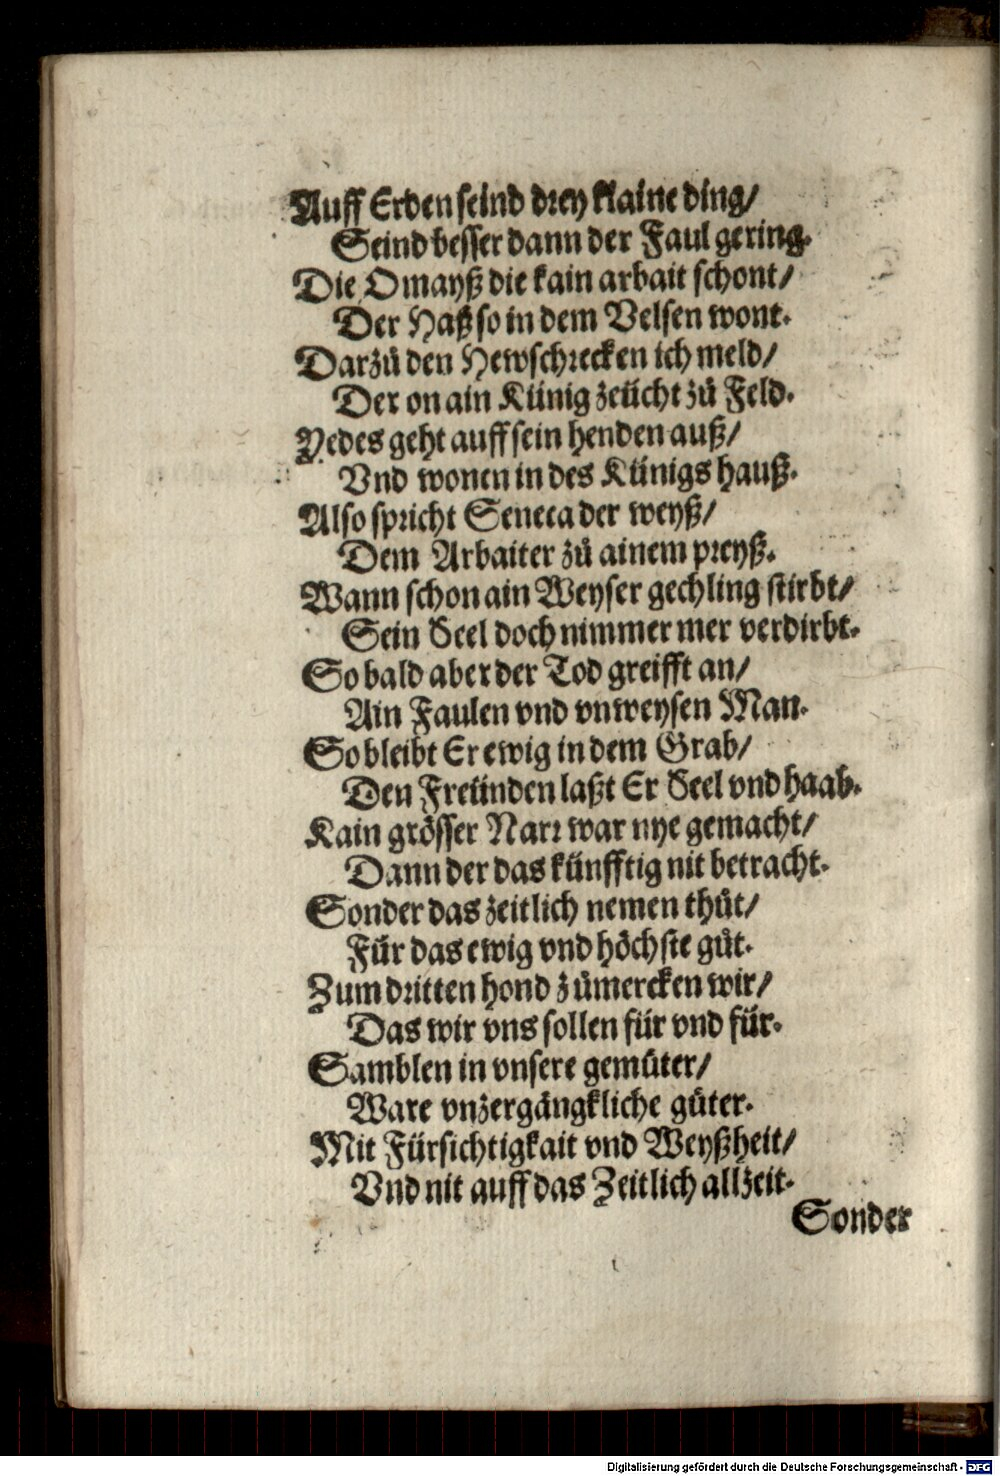 Auff Erden seind drey klaine ding/
Seind besser dann der Faul gering.
Die Omayß die kain arbait schont/
Der Haß so in dem Velsen wont.
Darzů den Hewschrecken ich meld/
Der on ain Künig zeücht zů Feld.
Yedes geht auff sein henden auß/
Vnd wonen in des Künigs hauß.
Also spricht Seneca der weyß/
Dem Arbaiter zů ainem preyß.
Wann schon ain Weyser gechling stirbt/
Sein Seel doch nimmer mer verdirbt.
So bald aber der Tod greifft an/
Ain Faulen vnd vnweysen Man.
So bleibt Er ewig in dem Grab/
Den Freünden laßt Er Seel vnd haab.
Kain grösser Narr war nye gemacht/
Dann der das künfftig nit betracht.
Sonder das zeitlich nemen thůt/
Für das ewig vnd höchste gůt.
Zum dritten hond zůmercken wir/
Das wir vns sollen für vnd für.
Samblen in vnsere gemüter/
Ware vnzergängkliche güter.
Mit Fürsichtigkait vnd Weyßheit/
Vnd nit auff das Zeitlich allzeit.
Sonder
Digitalisierung gefördert durch die Deutsche Forschungsgemeinschaft - DFG